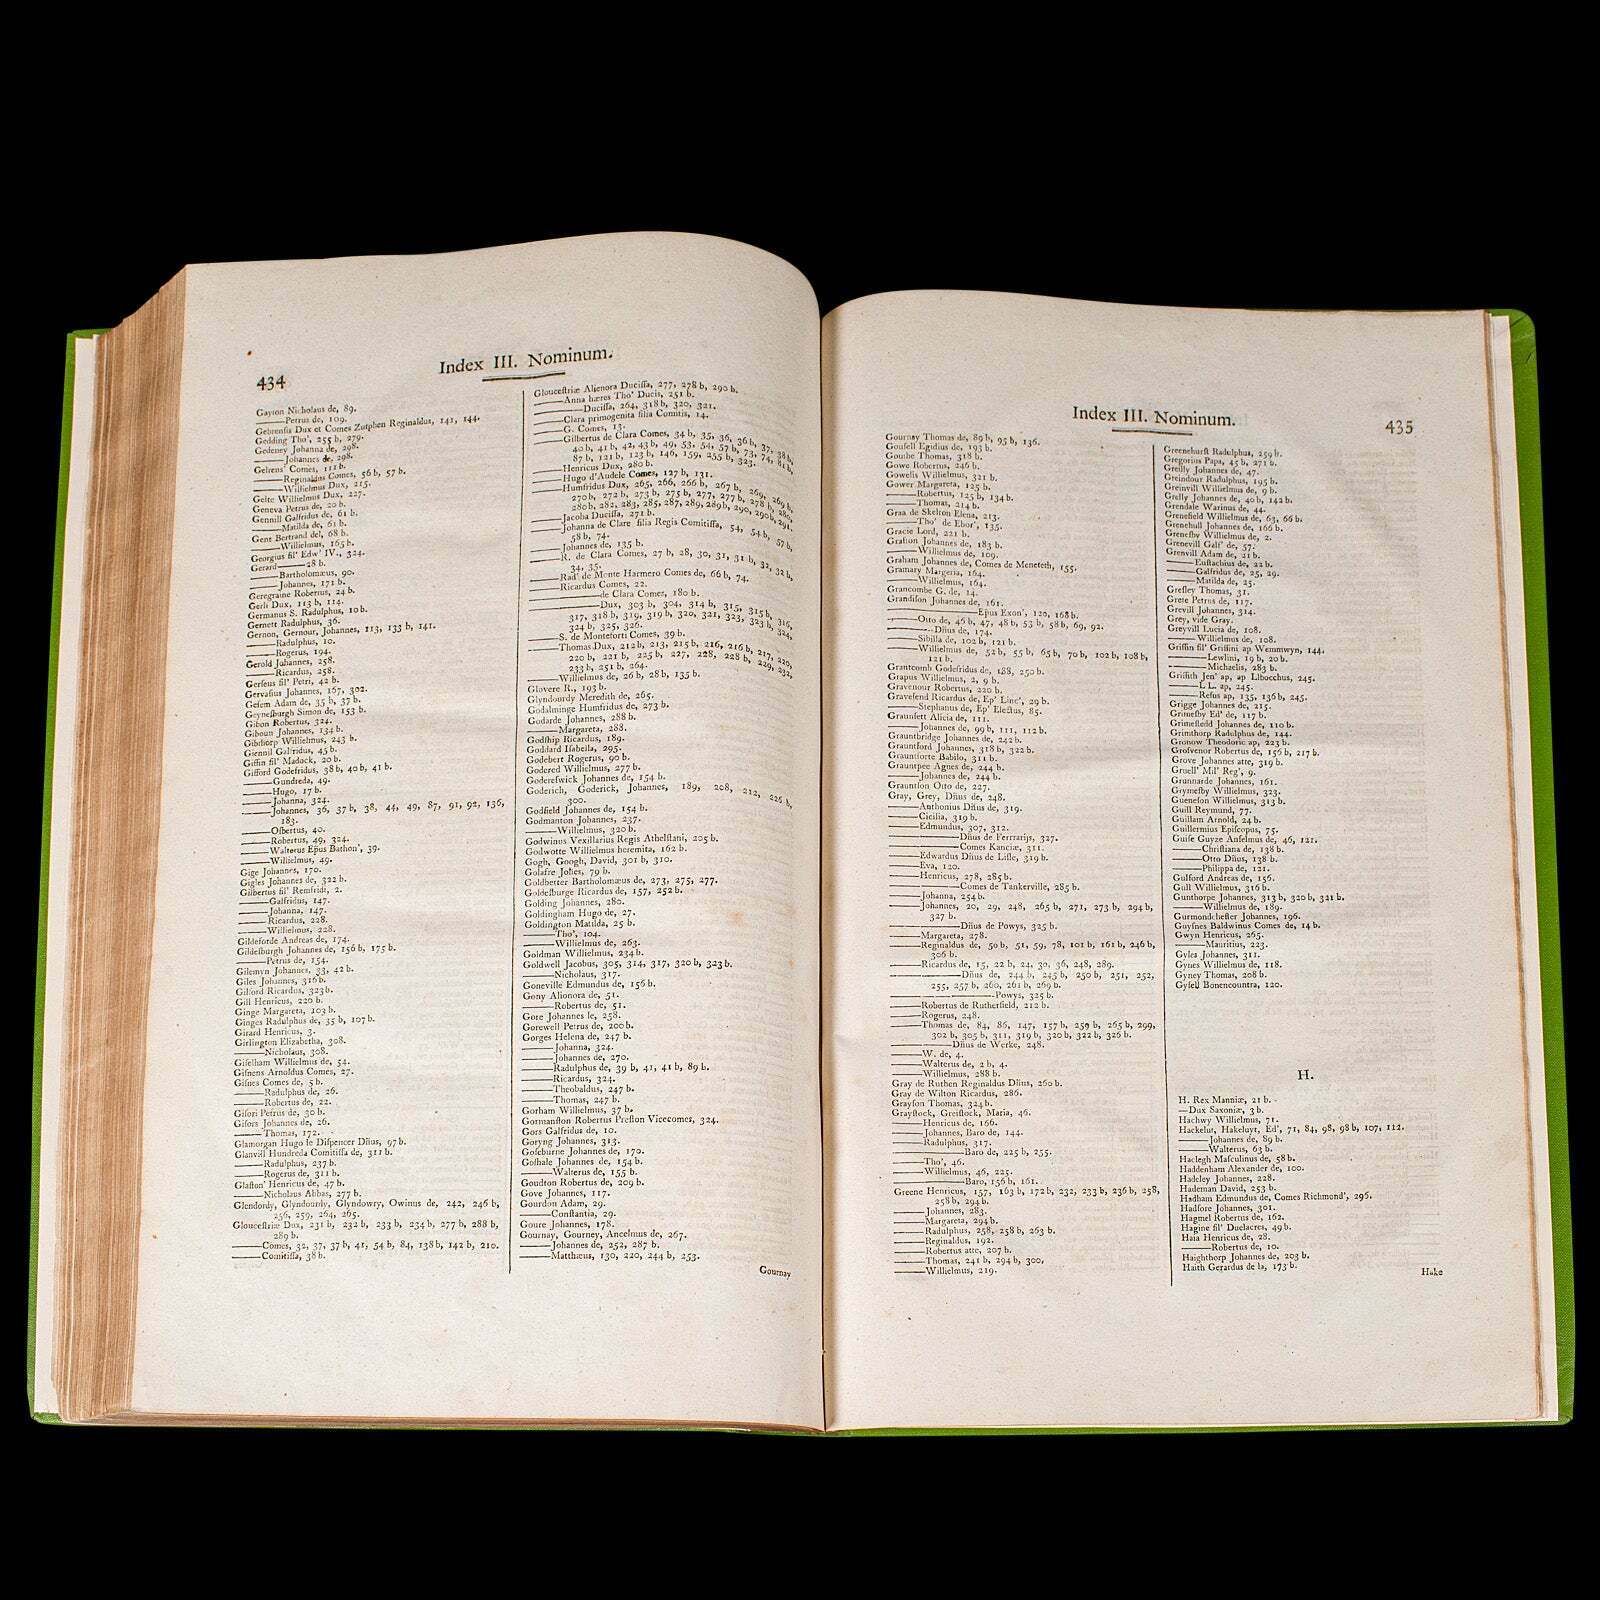 434
Index III. Nominum.
Gayton Nicholaus de, 89.
——Petrus de, 109.
Gebrensis Dux et Comes Zutphen Reginaldus, 141, 144.
Gedding Tho', 255 b, 279.
Gedeney Johanna de, 298.
——Johannes de, 298.
Gelrens' Comes, 111 b.
——Reginaldus Comes, 56 b, 57 b.
——Willielmus Dux, 215.
Gelte Willielmus Dux, 227.
Geneva Petrus de, 20 b.
Gennill Galfridus de, 61 b.
——Matilda de, 61 b.
Gent Bertrand del, 68 b.
——Willielmus, 165 b.
Georgius fil' Edw' IV., 324.
Gerard——28 b.
——Bartholomæus, 90.
——Johannes, 171 b.
Geregraine Robertus, 24 b.
Gerli Dux, 113 b, 114.
Germanus S. Radulphus, 10 b.
Gernett Radulphus, 36.
Gernon, Gernour, Johannes, 113, 133 b, 141.
——Radulphus, 10.
——Rogerus, 194.
Gerold Johannes, 258.
——Ricardus, 258.
Gerseus fil' Petri, 42 b.
Gervasius Johannes, 167, 302.
Gesem Adam de, 35 b, 37 b.
Geynesburgh Simon de, 153 b.
Gibon Robertus, 324.
Giboun Johannes, 134 b.
Gibthorp Willielmus, 243 b.
Giennil Galfridus, 45 b.
Giffin fil' Madock, 20 b.
Gifford Godefridus, 38 b, 40 b, 41 b.
——Gundreda, 49.
——Hugo, 17 b.
——Johanna, 324.
——Johannes, 36, 37 b, 38, 44, 49, 87, 91, 92, 136,
183.
——Osbertus, 40.
——Robertus, 49, 324.
——Walterus Epus Bathon', 39.
——Willielmus, 49.
Gige Johannes, 170.
Gigles Johannes de, 322 b.
Gilbertus fil' Remfridi, 2.
——Galfridus, 147.
——Johanna, 147.
——Ricardus, 228.
——Willielmus, 228.
Gildeforde Andreas de, 174.
Gildesburgh Johannes de, 156 b, 175 b.
——Petrus de, 154.
Gilemyn Johannes, 33, 42 b.
Giles Johannes, 316 b.
Gilford Ricardus, 323 b.
Gill Henricus, 220 b.
Ginge Margareta, 103 b.
Ginges Radulphus de, 35 b, 107 b.
Girard Henricus, 3.
Girlington Elizabetha, 308.
——Nicholaus, 308.
Giselham Willielmus de, 54.
Gisnens Arnoldus Comes, 27.
Gisnes Comes de, 5 b.
——Radulphus de, 26.
——Robertus de, 22.
Gisori Petrus de, 30 b.
Gisors Johannes de, 26.
——Thomas, 172.
Glamorgan Hugo le Dispencer Dñus, 97 b.
Glanvill Hundreda Comitissa de, 311 b.
——Radulphus, 237 b.
——Rogerus de, 311 b.
Glaston' Henricus de, 47 b.
——Nicholaus Abbas, 277 b.
Glendordy, Glyndourdy, Glyndowry, Owinus de, 242, 246 b,
256, 259, 264, 265.
Gloucestriæ Dux, 231 b, 232 b, 233 b, 234 b, 277 b, 288 b,
289 b.
——Comes, 32, 37, 37 b, 41, 54 b, 84, 138 b, 142 b, 210.
——Comitissa, 38 b.
Gloucestriæ Alienora Ducissa, 277, 278 b, 290 b.
——Anna hæres Tho' Ducis, 251 b.
——Ducissa, 264, 318 b, 320, 321.
——Clara primogenita filia Comitis, 14.
——G. Comes, 13.
——Gilbertus de Clara Comes, 34 b, 35, 36, 36 b, 37, 38 b,
40 b, 41 b, 42, 43 b, 49, 53, 54 b, 57 b, 73, 74, 81 b,
87 b, 121 b, 123 b, 146, 159, 255 b, 323.
——Henricus Dux, 280 b.
——Hugo d'Audele Comes, 127 b, 131.
——Humfridus Dux, 265, 266, 266 b, 267 b, 269, 269 b,
270 b, 272 b, 273 b, 275 b, 277, 277 b, 278 b, 280,
280 b, 282, 283, 285, 287, 289, 289 b, 290, 290 b, 291.
——Jacoba Ducissa, 271 b.
——Johanna de Clare filia Regis Comitissa, 54, 54 b, 57 b,
58 b, 74.
——Johannes de, 135 b.
——R. de Clara Comes, 27 b, 28, 30, 31, 31 b, 32, 32 b,
34, 35.
——Rad' de Monte Harmero Comes de, 66 b, 74.
——Ricardus Comes, 22.
——de Clara Comes, 180 b.
——Dux, 303 b, 304, 314 b, 315, 315 b, 316,
317, 318 b, 319, 319 b, 320, 321, 323, 323 b, 324,
324 b, 325, 326.
——S. de Monteforti Comes, 39 b.
——Thomas Dux, 212 b, 213, 215 b, 216, 216 b, 217, 220,
220 b, 221 b, 225 b, 227, 228, 228 b, 229, 232,
233 b, 251 b, 264.
——Willielmus de, 26 b, 28 b, 135 b.
Glovere R., 193 b.
Glyndourdy Meredith de, 265.
Godalminge Humfridus de, 273 b.
Godarde Johannes, 288 b.
——Margareta, 288.
Godship Ricardus, 189.
Goddard Isabella, 295.
Godebert Rogerus, 90 b.
Godered Willielmus, 277 b.
Godereswick Johannes de, 154 b.
Goderich, Goderick, Johannes, 189, 208, 212, 226 b,
300.
Godfield Johannes de, 154 b.
Godmanton Johannes, 237.
——Willielmus, 320 b.
Godwinus Vexillarius Regis Athelstani, 205 b.
Godwotte Willielmus heremita, 162 b.
Gogh, Googh, David, 301 b, 310.
Golafre Johes, 79 b.
Goldbetter Bartholomæus de, 273, 275, 277.
Goldesburge Ricardus de, 157, 252 b.
Golding Johannes, 280.
Goldingham Hugo de, 27.
Goldington Matilda, 25 b.
——Tho', 104.
——Willielmus de, 263.
Goldman Willielmus, 234 b.
Goldwell Jacobus, 305, 314, 317, 320 b, 323 b.
——Nicholaus, 317.
Goneville Edmundus de, 156 b.
Gony Alionora de, 51.
——Robertus de, 51.
Gore Johannes le, 258.
Gorewell Petrus de, 200 b.
Gorges Helena de, 247 b.
——Johanna, 324.
——Johannes de, 270.
——Radulphus de, 39 b, 41, 41 b, 89 b.
——Ricardus, 324.
——Theobaldus, 247 b.
——Thomas, 247 b.
Gorham Willielmus, 37 b.
Gormanston Robertus Preston Vicecomes, 324.
Gors Galfridus de, 10.
Goryng Johannes, 313.
Gosburne Johannes de, 170.
Goshale Johannes de, 154 b.
——Walterus de, 155 b.
Goudton Robertus de, 209 b.
Gove Johannes, 117.
Gourdon Adam, 29.
——Constantia, 29.
Goure Johannes, 178.
Gournay, Gourney, Ancelmus de, 267.
——Johannes de, 252, 287 b.
——Matthæus, 130, 220, 244 b, 253.
Gournay
Index III. Nominum.
435
Gournay Thomas de, 89 b, 95 b, 136.
Gousell Egidius de, 193 b.
Goushe Thomas, 318 b.
Gowe Robertus, 246 b.
Gowelis Willielmus, 321 b.
Gower Margareta, 125 b.
——Robertus, 125 b, 134 b.
——Thomas, 214 b.
Graa de Skelton Elena, 213.
——Tho' de Ebor', 135.
Gracie Lord, 221 b.
Grafton Johannes de, 183 b.
——Willielmus de, 109.
Graham Johannes de, Comes de Meneteth, 155.
Gramary Margeria, 164.
——Willielmus, 164.
Grancombe G. de, 14.
Grandison Johannes de, 161.
——Epus Exon', 120, 168 b.
——Otto de, 46 b, 47, 48 b, 53 b, 58 b, 69, 92.
——Dñus de, 174.
——Sibilla de, 102 b, 121 b.
——Willielmus de, 52 b, 55 b, 65 b, 70 b, 102 b, 108 b,
121 b.
Grantcomb Godefridus de, 188, 250 b.
Grapus Willielmus, 2, 9 b.
Gravenour Robertus, 220 b.
Gravesend Ricardus de, Ep' Linc', 29 b.
——Stephanus de, Ep' Electus, 85.
Graunsett Alicia de, 111.
——Johannes de, 99 b, 111, 112 b.
Grauntbridge Johannes de, 242 b.
Grauntford Johannes, 318 b, 322 b.
Grauntforte Babilo, 311 b.
Grauntpee Agnes de, 244 b.
——Johannes de, 244 b.
Grauntson Otto de, 227.
Gray, Grey, Dñus de, 248.
——Anthonius Dñus de, 319.
——Cicilia, 319 b.
——Edmundus, 307, 312.
——Dñus de Ferrarijs, 327.
——Comes Kanciæ, 311.
——Edwardus Dñus de Lisle, 319 b.
——Eva, 120.
——Henricus, 278, 285 b.
——Comes de Tankerville, 285 b.
——Johanna, 254 b.
——Johannes, 20, 29, 248, 265 b, 271, 273 b, 294 b,
327 b.
——Dñus de Powys, 325 b.
——Margareta, 278.
——Reginaldus de, 50 b, 51, 59, 78, 101 b, 161 b, 246 b,
306 b.
——Ricardus de, 15, 22 b, 24, 30, 36, 248, 289.
——Dñus de, 244 b, 245 b, 250 b, 251, 252,
255, 257 b, 260, 261 b, 269 b.
——Powys, 325 b.
——Robertus de Rutherfield, 212 b.
——Rogerus, 248.
——Thomas de, 84, 86, 147, 157 b, 259 b, 265 b, 299,
302 b, 305 b, 311, 319 b, 320 b, 322 b, 326 b.
——Dñus de Werke, 248.
——W. de, 4.
——Walterus de, 2 b, 4.
——Willielmus, 288 b.
Gray de Ruthen Reginaldus Dñus, 260 b.
Gray de Wilton Ricardus, 286.
Grayson Thomas, 324 b.
Graystock, Greistock, Maria, 46.
——Henricus de, 166.
——Johannes, Baro de, 144.
——Radulphus, 317.
——Baro de, 225 b, 255.
——Tho', 46.
——Willielmus, 46, 225.
——Baro, 156 b, 161.
Greene Henricus, 157, 163 b, 172 b, 232, 233 b, 236 b, 258,
258 b, 294 b.
——Johannes, 283.
——Margareta, 294 b.
——Radulphus, 258, 258 b, 263 b.
——Reginaldus, 192.
——Robertus atte, 207 b.
——Thomas, 241 b, 294 b, 300,
——Willielmus, 219.
Greenehurst Radulphus, 259 b.
Gregorius Papa, 45 b, 271 b.
Greilly Johannes de, 47.
Greindour Radulphus, 195 b.
Greinvill Willielmus de, 9 b.
Grelly Johannes de, 40 b, 142 b.
Grendale Warinus de, 44.
Grenefield Willielmus de, 63, 66 b.
Grenehull Johannes de, 166 b.
Grenesby Willielmus de, 2.
Grenevill Galf' de, 57.
Grenvill Adam de, 21 b.
——Eustachius de, 22 b.
——Galfridus de, 25, 29.
——Matilda de, 25.
Gresley Thomas, 31.
Grete Petrus de, 117.
Grevill Johannes, 314.
Grey, vide Gray.
Greyvill Lucia de, 108.
——Willielmus de, 108.
Griffin fil' Griffini ap Wemmwyn, 144.
——Lewlini, 19 b, 20 b.
——Michaelis, 283 b.
Griffith Jen' ap, ap Llbocchus, 245.
——LL. ap, 245.
——Resus ap, 135, 136 b, 245.
Grigge Johannes de, 215.
Grimesby Ed' de, 117 b.
Grimesfedd Johannes de, 110 b.
Grimthorp Radulphus de, 144.
Gronow Theodoric ap, 223 b.
Grosvenor Robertus de, 156 b, 217 b.
Grove Johannes atte, 319 b.
Gruell' Mil' Reg', 9.
Grunnarde Johannes, 161.
Grymesby Willielmus, 323.
Gueneson Willielmus, 313 b.
Guill Reymund, 77.
Guillam Arnold, 24 b.
Guillermius Episcopus, 75.
Guise Guyze Anselmus de, 46, 121.
——Christiana de, 138 b.
——Otto Dñus, 138 b.
——Philippa de, 121.
Gulford Andreas de, 156.
Gull Willielmus, 316 b.
Gunthorpe Johannes, 313 b, 320 b, 321 b.
——Willielmus de, 189.
Gurmondchester Johannes, 196.
Guysnes Baldwinus Comes de, 14 b.
Gwyn Henricus, 265.
——Mauritius, 223.
Gyles Johannes, 311.
Gynes Willielmus de, 118.
Gyney Thomas, 208 b.
Gysell Bonencountra, 120.
H.
H. Rex Manniæ, 21 b.
—Dux Saxoniæ, 3 b.
Hachwy Willielmus, 71.
Hackelut, Hakeluyt, Ed', 71, 84, 98, 98 b, 107, 112.
——Johannes de, 89 b.
——Walterus, 63 b.
Haclegh Masculinus de, 58 b.
Haddenham Alexander de, 100.
Hadeley Johannes, 228.
Hademan David, 253 b.
Hadham Edmundus de, Comes Richmond', 296.
Hadfore Johannes, 301.
Hagmel Robertus de, 162.
Hagine fil' Duelacres, 49 b.
Haia Henricus de, 28.
——Robertus de, 10.
Haighthorp Johannes de, 203 b.
Haith Gerardus de la, 173 b.
Hake